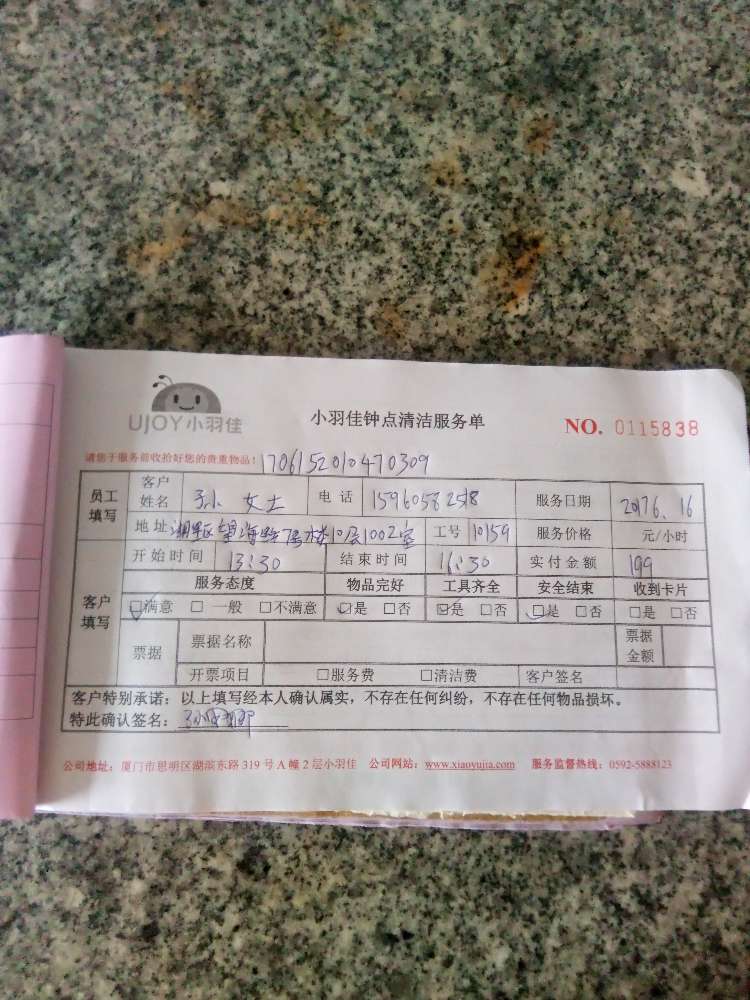 UJOY小羽佳
小羽佳钟点清洁服务单
NO. 0115838
请您于服务前收拾好您的贵重物品! 170615201047 0309
员工填写 客户姓名 孙女士 电话 15960582518 服务日期 2017 6.16
地址 望海路 楼10层1002室 工号 10159 服务价格 元/小时
开始时间 13:30 结束时间 16:30 实付金额 199
客户填写 服务态度 物品完好 工具齐全 安全结束 收到卡片
□满意 □一般 □不满意 □是 □否 □是 □否 □是 □否 □是 □否
票据 票据名称 票据金额
开票项目 □服务费 □清洁费 客户签名
客户特别承诺：以上填写经本人确认属实，不存在任何纠纷，不存在任何物品损坏。
特此确认签名：
公司地址：厦门市思明区湖滨东路319号A幢2层小羽佳 公司网站：www.xiaoyujia.com 服务监督热线：0592-5888123